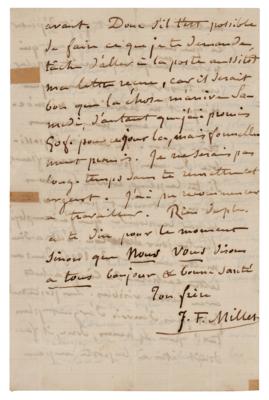 avant. Donc s'il t'est possible
de faire ce que je te demande,
tâche d'aller à la poste aussitôt
ma lettre reçue, car il serait
bon que la chose m'arrive Sa
medi, d'autant que j'ai promis
pour ce jour là, mais formelle
ment promis. Je ne serai pas
long-temps sans te remettre cet
argent. J'ai pu recommencer
à travailler. Rien de plus
à te dire pour le moment
sinon que Nous Vous disons
à tous bonjour & bonne santé
Ton frère
J. F. Millet